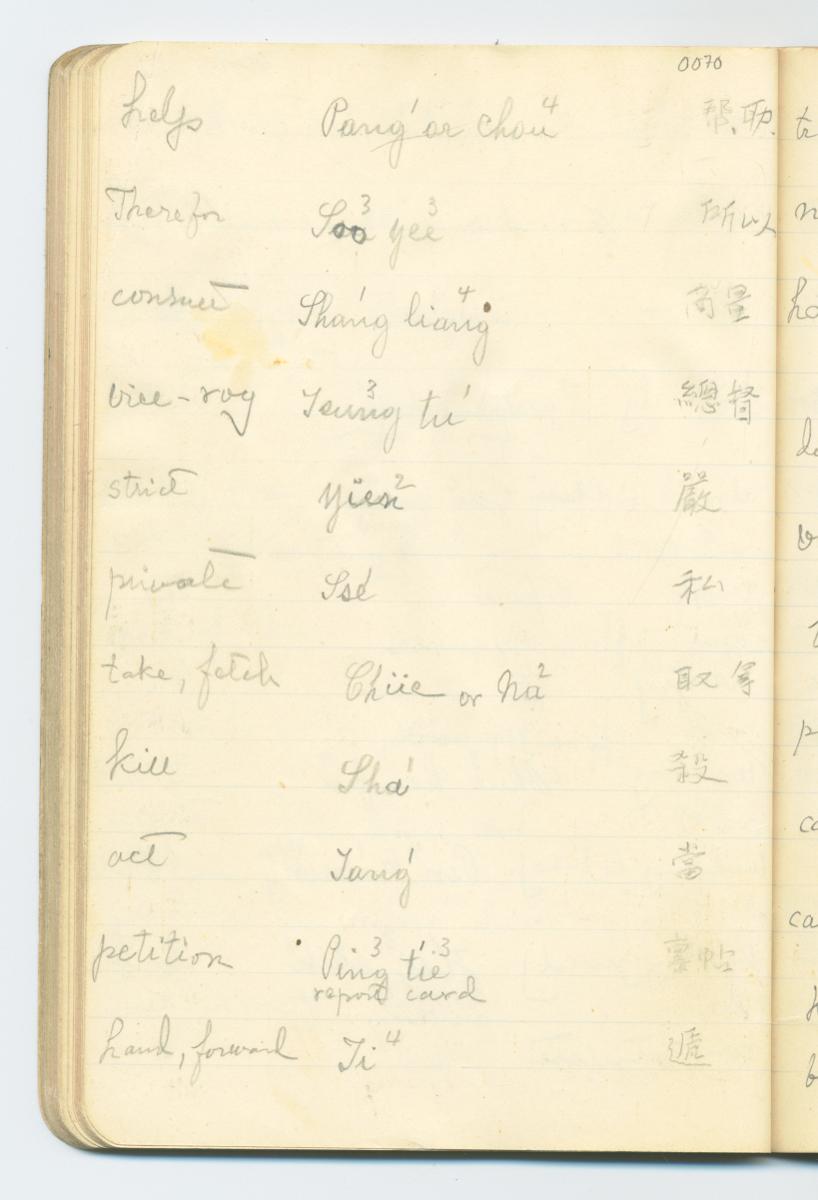 0070
help Pang' or chou⁴ 帮.助.
Therefor Soo³ yee³ 所以
consult Sháng liang⁴ 商量
vice-roy Tsung³ tu' 總督
strict Yien² 嚴
private Ssé 私
take, fetch Chüe or Na² 取 拿
kill Sha' 殺
act Tang' 當
petition Ping³ tie³ 稟帖
report card
hand, forward Ti⁴ 遞